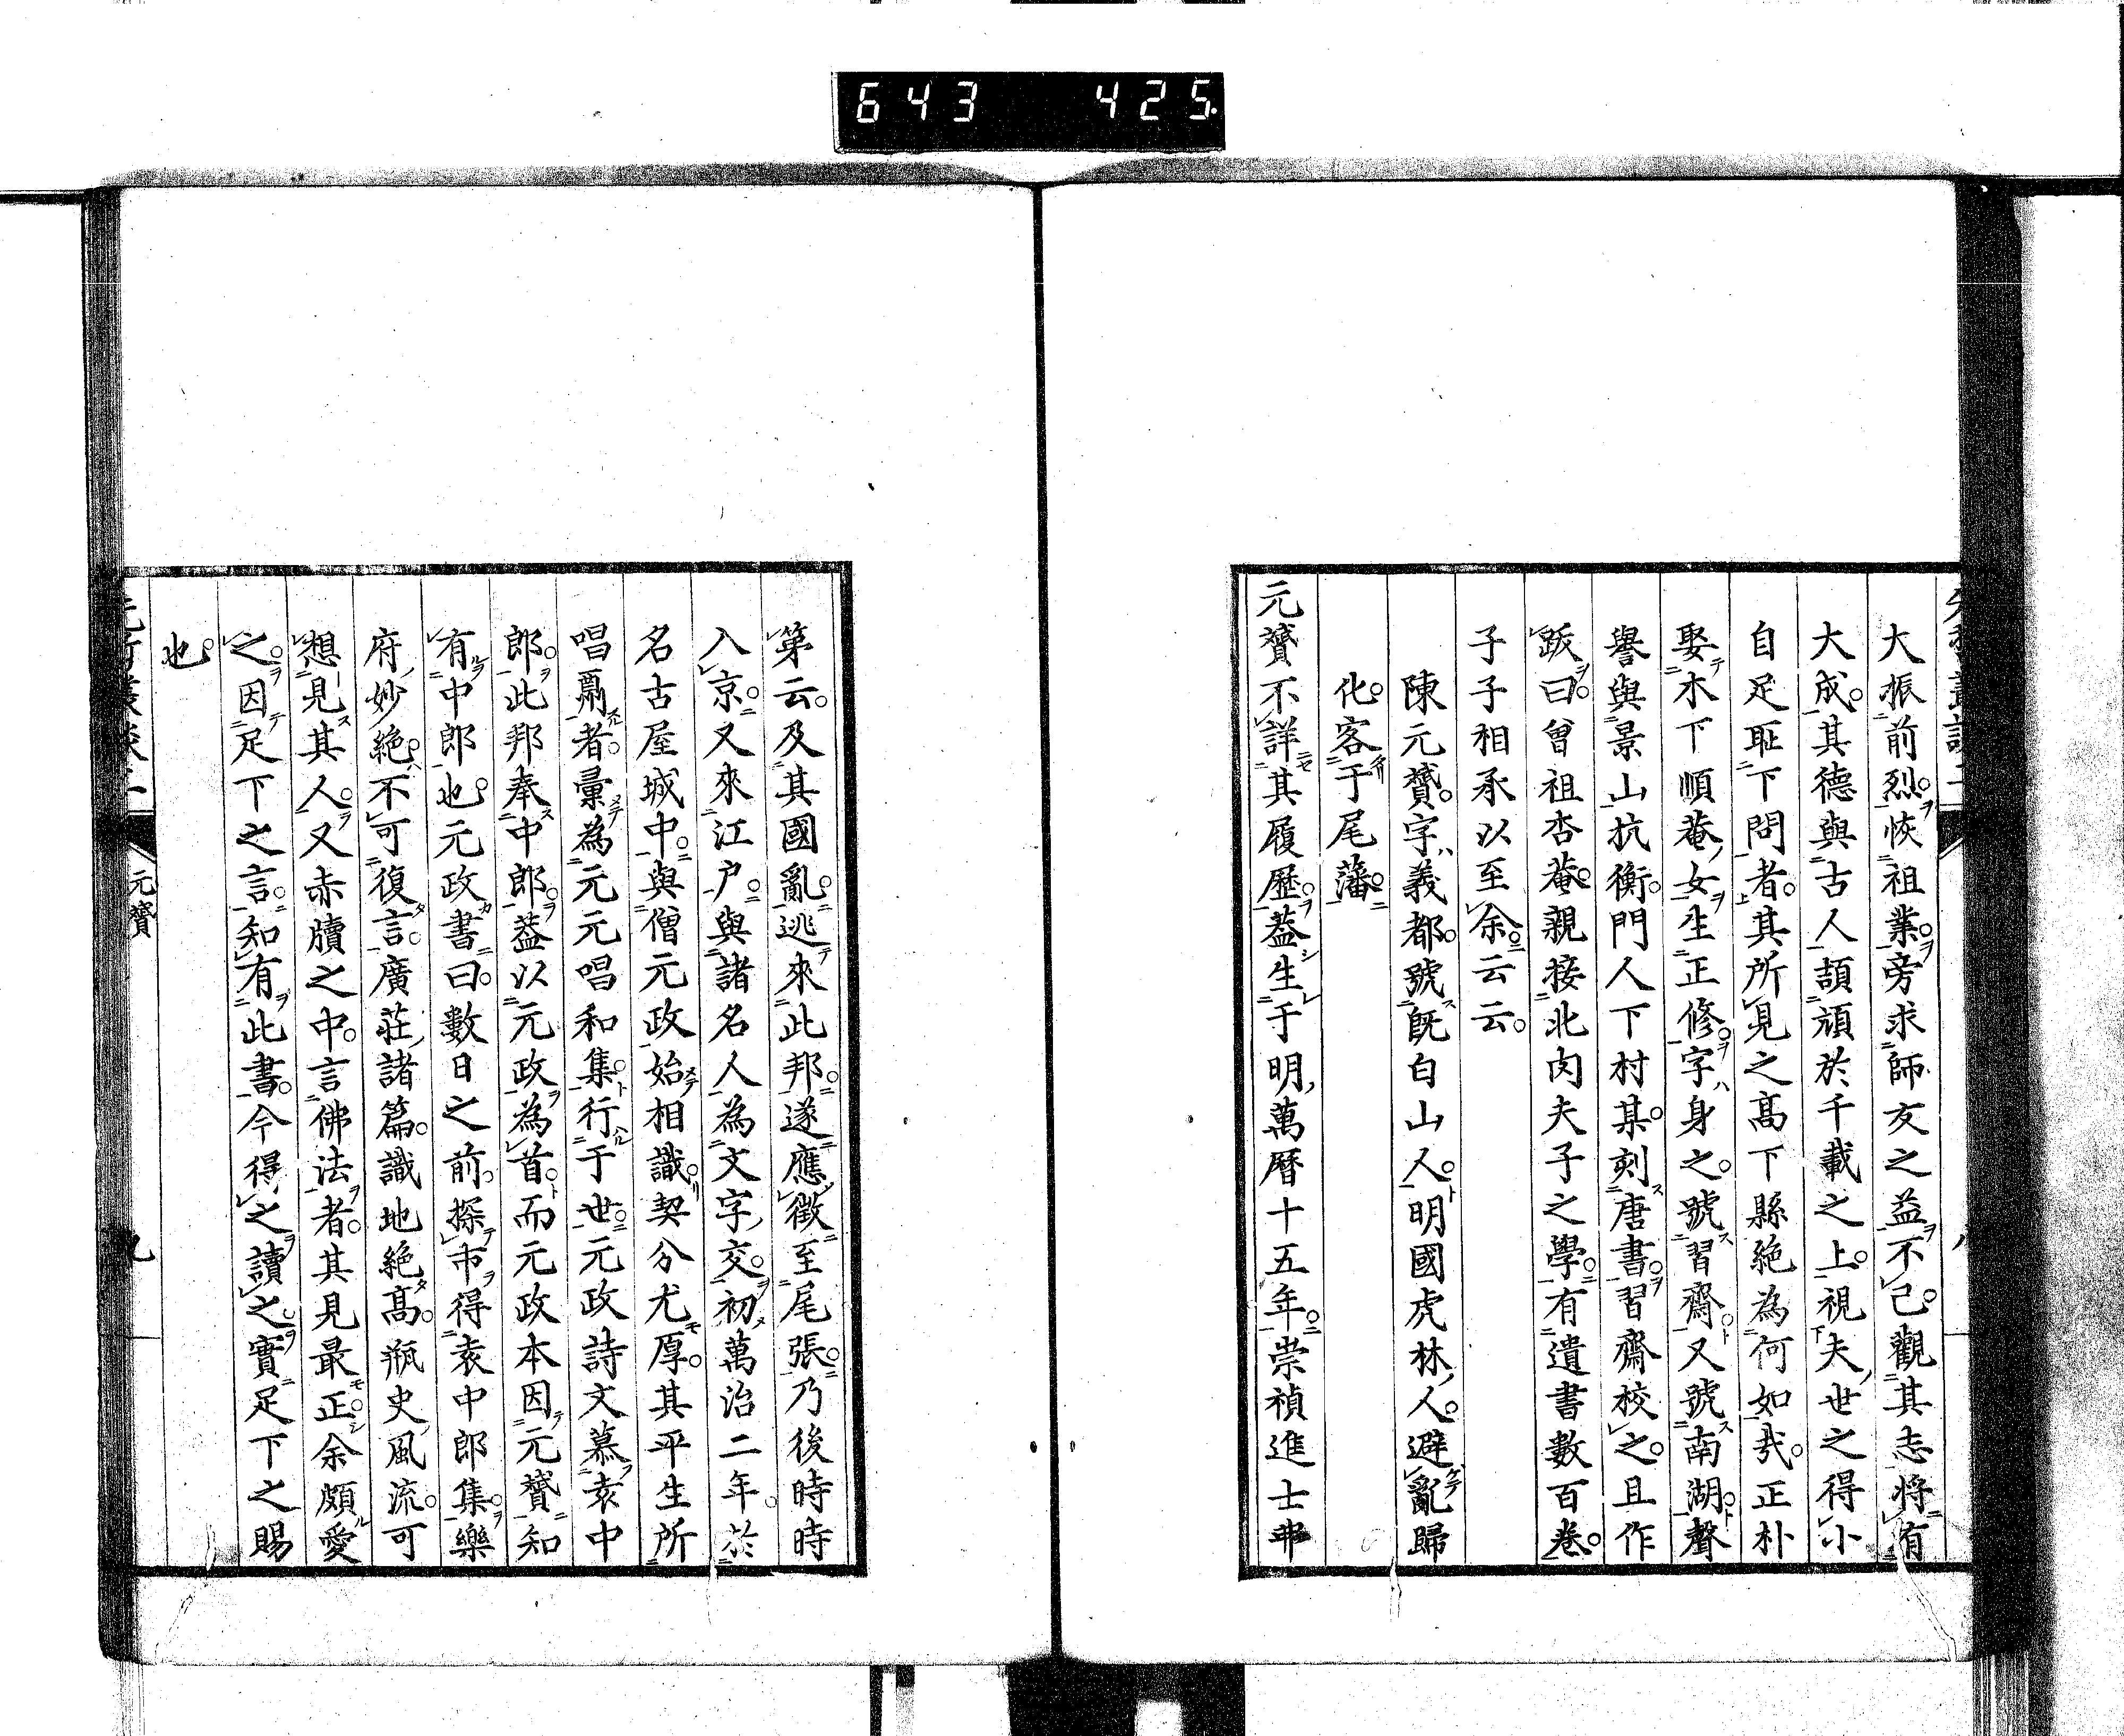 643 425
大振前烈恢祖業旁求師友之益不已觀其志將有
大成其德與古人頡頏於千載之上視夫世之得小
自足耻下問者其所見之高下縣絶為何如哉正朴
娶木下順菴女生正修字身之號習齋又號南湖聲
譽與景山抗衡門人下村某刻唐書習齋校之且作
跋曰曾祖杏菴親接北肉夫子之學有遺書數百卷
子子相承以至余云云
陳元贇字義都號既白山人明國虎林人避亂歸
化客于尾藩
元贇不詳其履歷葢生于明萬曆十五年崇禎進士弗
第云及其國亂逃來此邦遂應徵至尾張乃後時時
入京又來江戸與諸名人為文字交初萬治二年於
名古屋城中與僧元政始相識契分尤厚其平生所
唱酬者彙為元元唱和集行于世元政詩文慕袁中
郎此邦奉中郎葢以元政為首而元政本因元贇知
有中郎也元政書曰數日之前探市得袁中郎集樂
府妙絶不可復言廣莊諸篇識地絶高瓶史風流可
想見其人又赤牘之中言佛法者其見最正余頗愛
之因足下之言知有此書今得之讀之實足下之賜
也
元贇
九